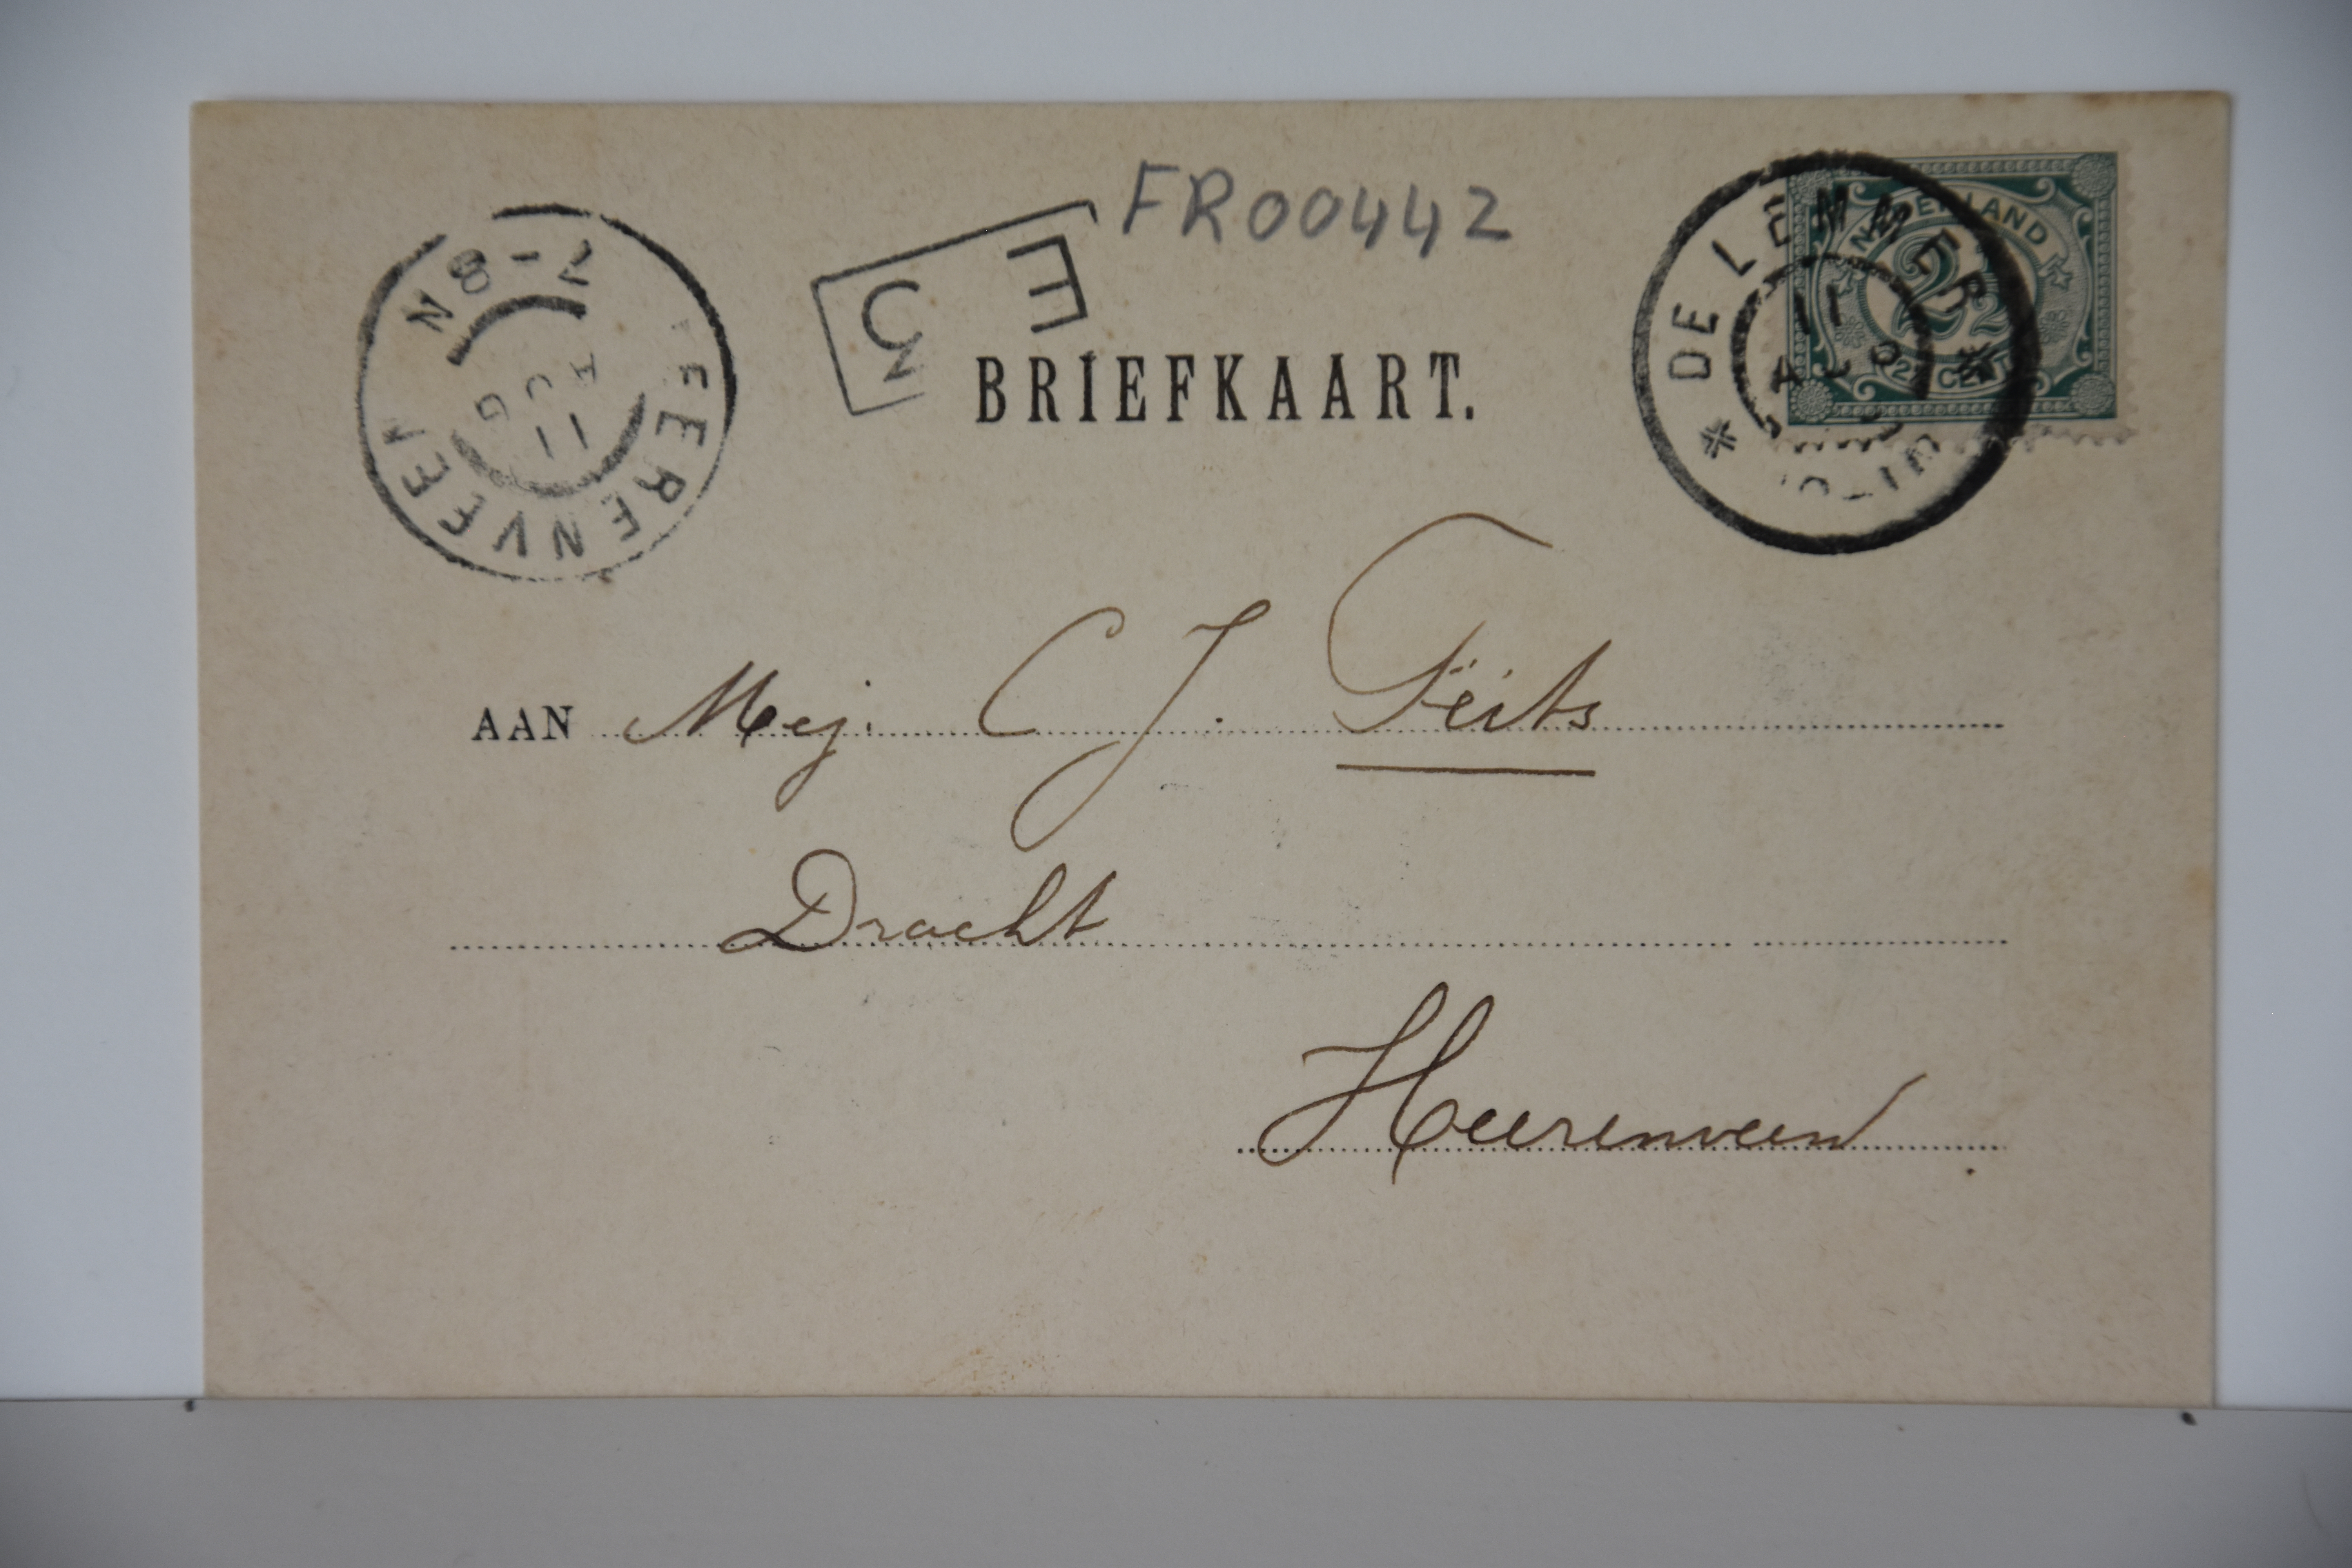 FR00442
7-8N
HEERENVEEN
11 AUG
E
3
DE LEMMER
NEDERLAND
2½
2½ CENT
BRIEFKAART.
AAN Mej. C J. Feits
Dracht
Heerenveen